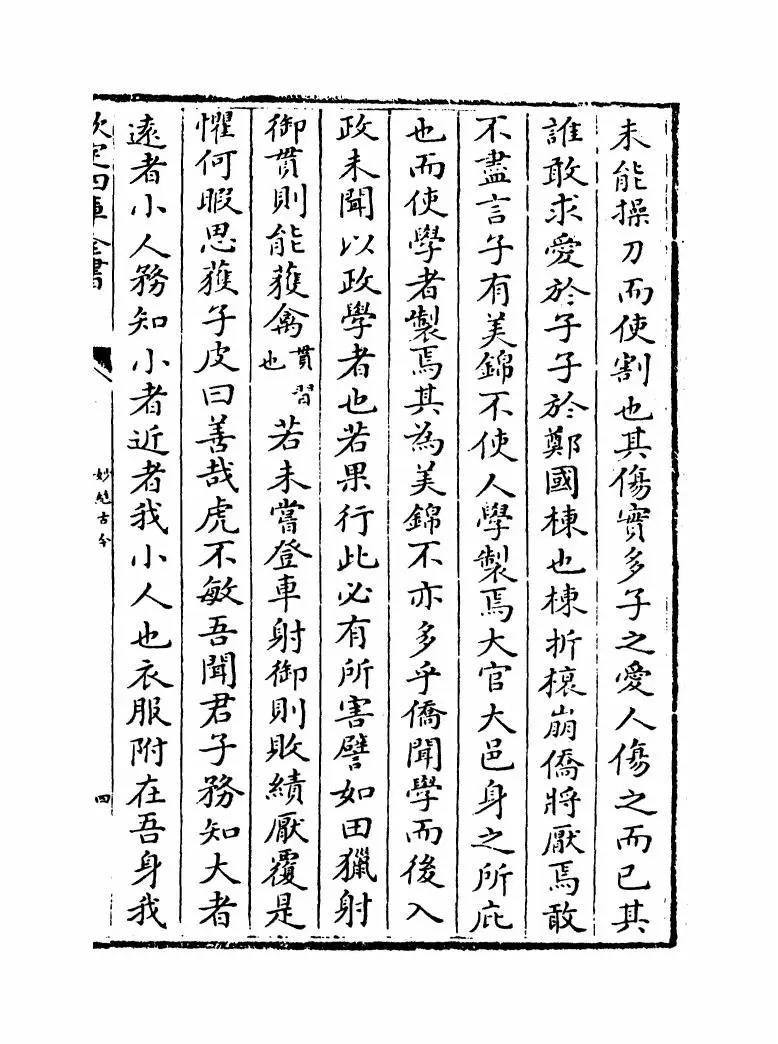 未能操刀而使割也其傷實多子之愛人傷之而已其
誰敢求愛於子子於鄭國棟也棟折榱崩僑將厭焉敢
不盡言子有美錦不使人學製焉大官大邑身之所庇
也而使學者製焉其為美錦不亦多乎僑聞學而後入
政未聞以政學者也若果行此必有所害譬如田獵射
御貫則能獲禽貫習也若未嘗登車射御則敗績厭覆是
懼何暇思獲子皮曰善哉虎不敏吾聞君子務知大者
遠者小人務知小者近者我小人也衣服附在吾身我
欽定四庫全書
妙絶古今
四